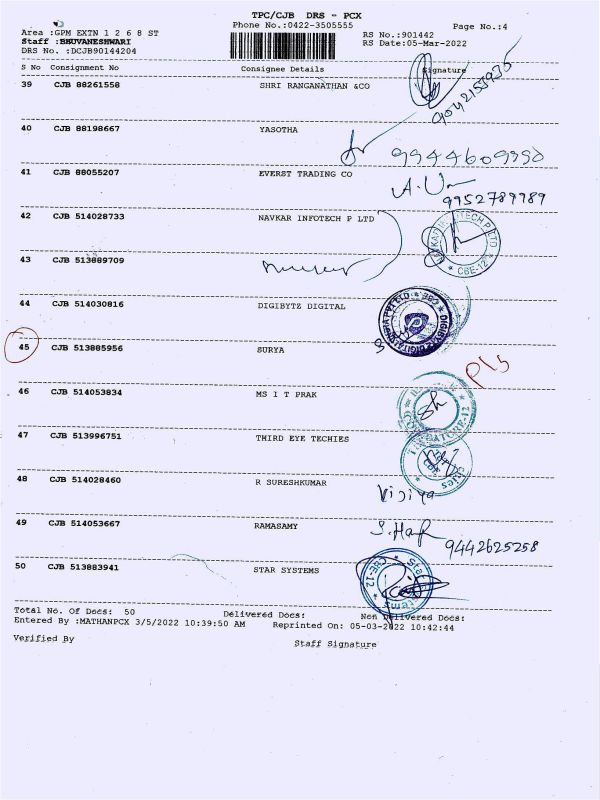 TPC/CJB DRS - PCX
Phone No.:0422-3505555 Page No.:4
Area :GPM EXTN 1 2 6 8 ST RS No.:901442
Staff :BHUVANESHWARI RS Date:05-Mar-2022
DRS No. :DCJB90144204
S No Consignment No Consignee Details Signature
39 CJB 88261558 SHRI RANGANATHAN &CO
40 CJB 88198667 YASOTHA
9944609990
41 CJB 88055207 EVERST TRADING CO
9952789989
42 CJB 514028733 NAVKAR INFOTECH P LTD
CBE-12
43 CJB 513889709
44 CJB 514030816 DIGIBYTE DIGITAL
45 CJB 513885956 SURYA
46 CJB 514053834 MS I T PRAK
47 CJB 513996751 THIRD EYE TECHIES
48 CJB 514028460 R SURESHKUMAR
Vijiya
49 CJB 514053667 RAMASAMY
9442625258
50 CJB 513883941 STAR SYSTEMS
CBE-12
Total No. Of Docs: 50 Delivered Docs: Non Delivered Docs:
Entered By :MATHANPCX 3/5/2022 10:39:50 AM Reprinted On: 05-03-2022 10:42:44
Verified By Staff Signature